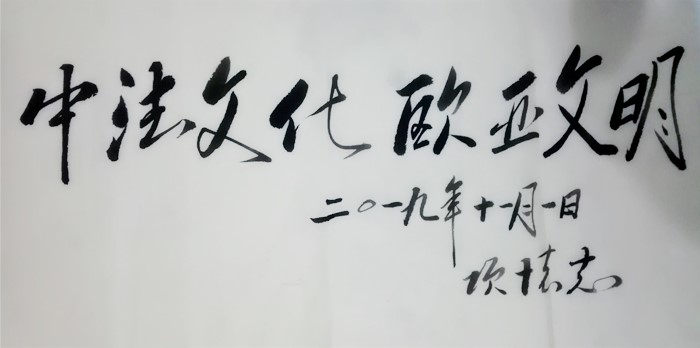 中法文化 欧亚文明
二〇一九年十一月一日
项怀志